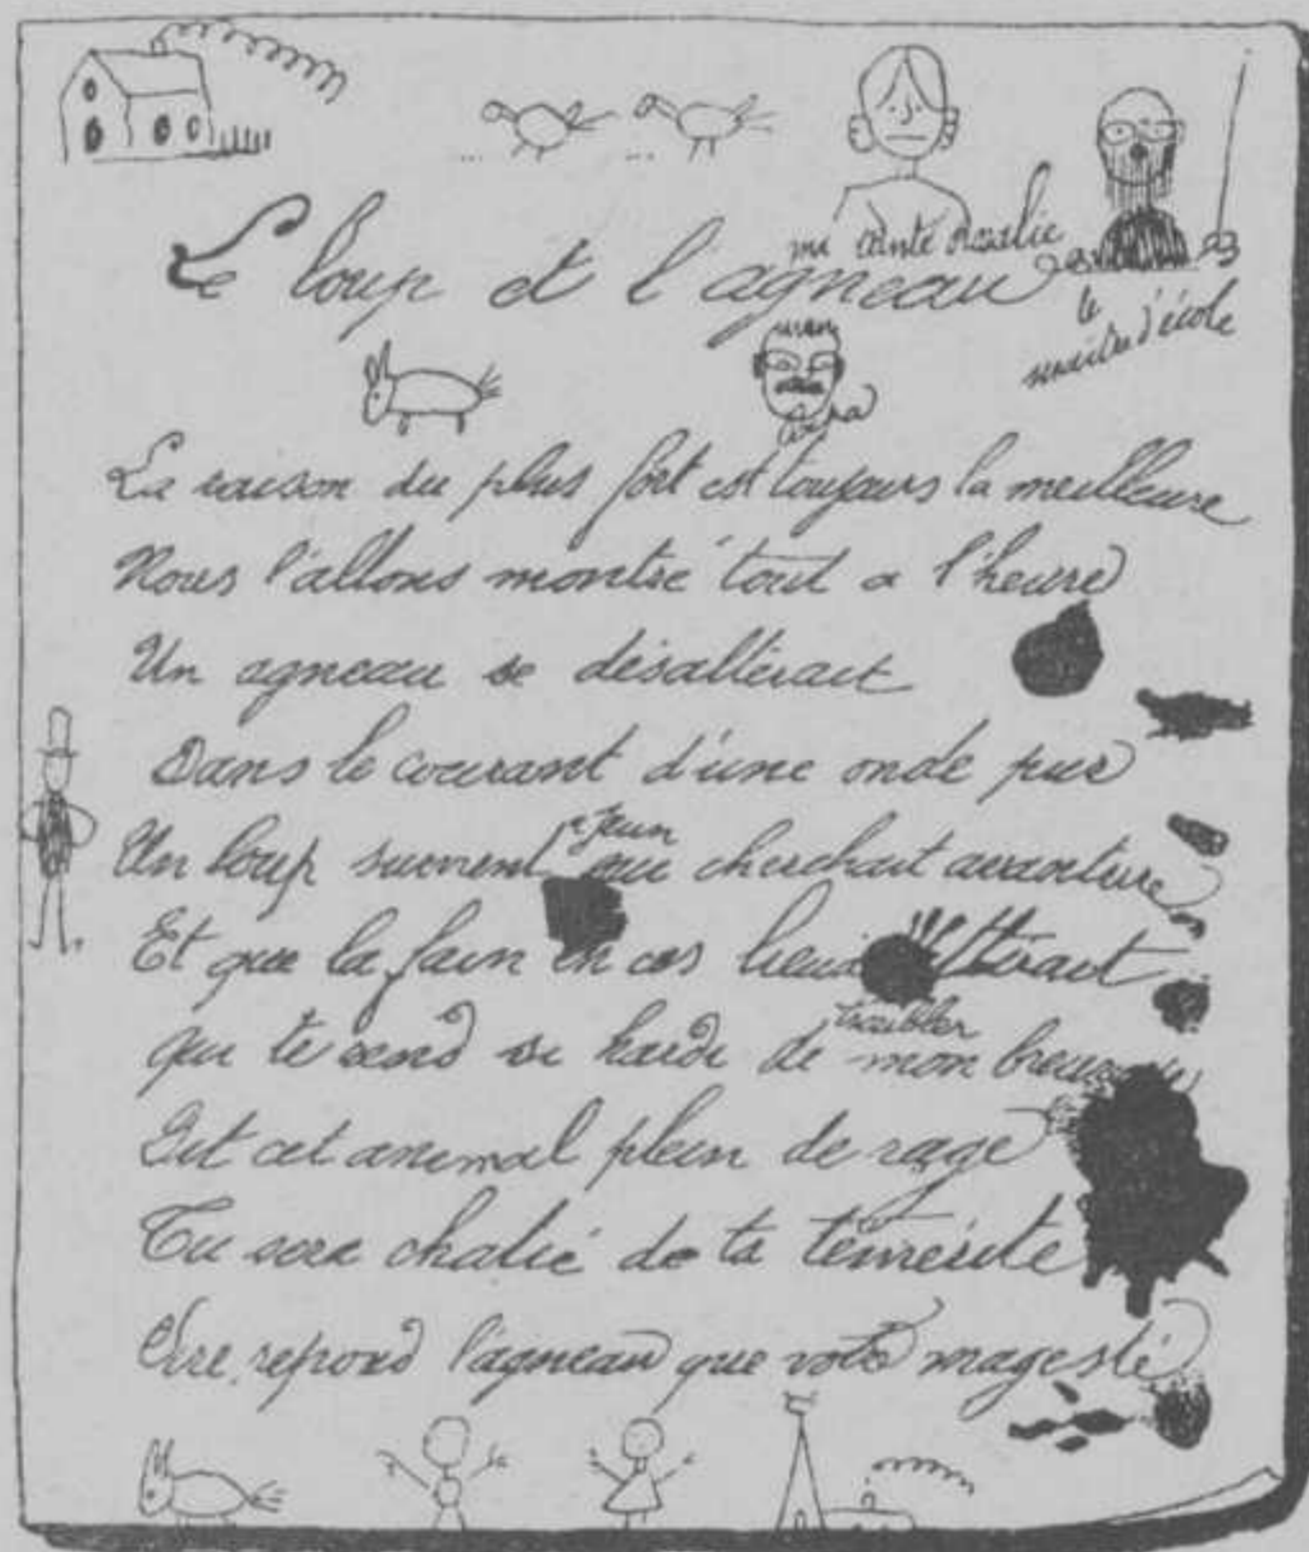 ma tante Rosalie
Le loup et l'agneau
le
maitre d'école
papa
La raison du plus fort est toujours la meilleure
Nous l'allons montré tout a l'heure
Un agneau se désaltérait
Dans le courant d'une onde pur
Un loup survient a jeun qui cherchait avanture
Et que la fain en ces lieux attirait
qui te rend si hardi de troubler mon breuvage
Dit cet animal plein de rage
Tu sera chatié de ta témérité
Sire repond l'agneau que votre magesté